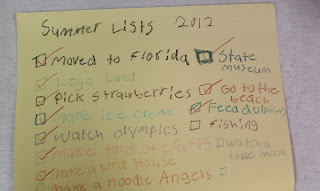 Summer Lists 2012
Moved to Florida
Lego Land
Pick strawberries
Make ice cream
Watch olympics
Make tons of crafts
Make a bird House
Make a noodle Angels
State
museum
Go to the
beach
Feed dolphins
Fishing
Watch a
blue moon